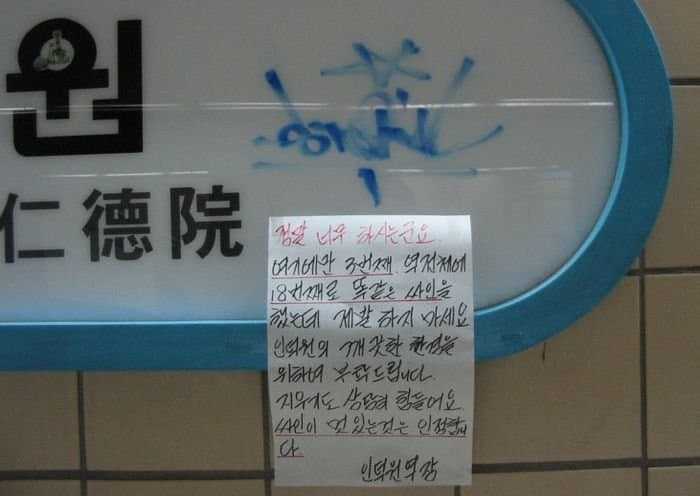 원
仁德院
정말 너무 하시는군요.
여기에만 3번째. 역전체에
18번째로 똑같은 싸인을
했는데 제발 하지 마세요
인덕원의 깨끗한 환경을
위하여 부탁드립니다.
지우기도 상당히 힘들어요.
싸인이 멋있는것은 인정합니
다.
인덕원역장